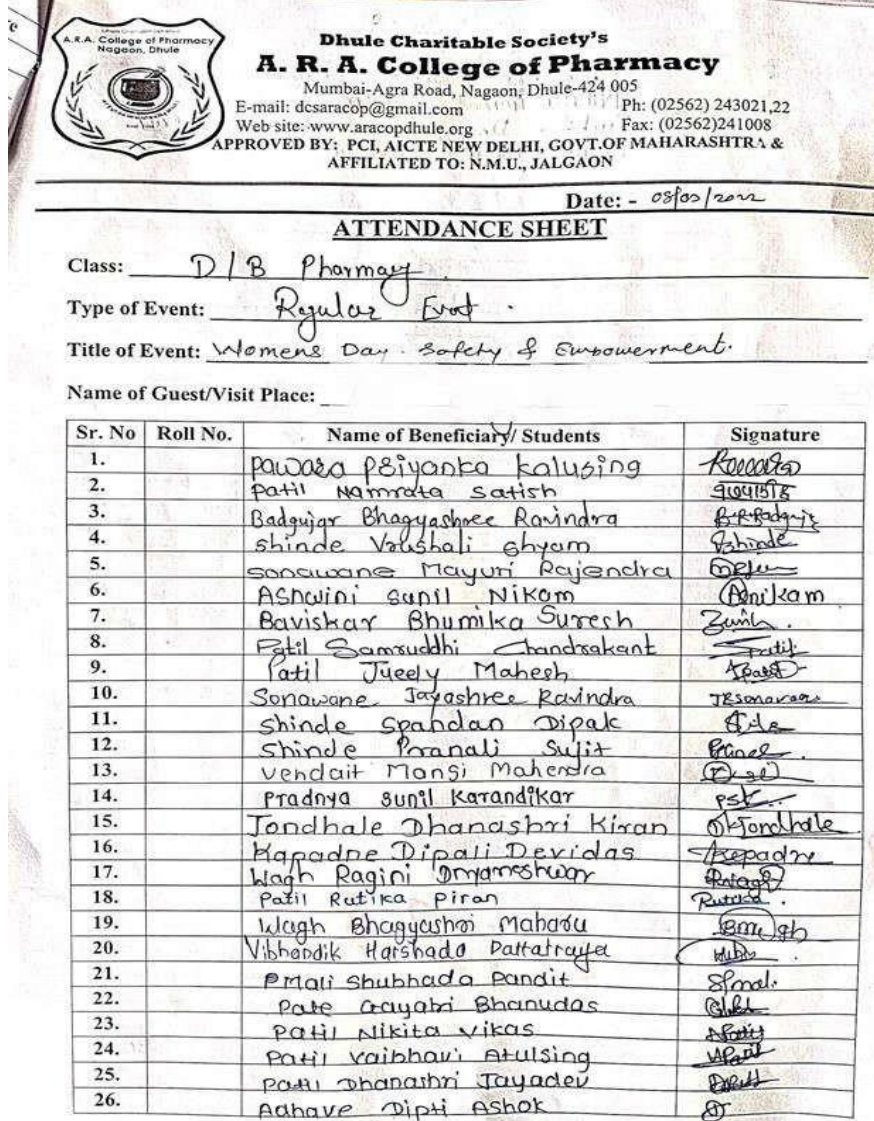 A.R.A. College of Pharmacy
Nagaon, Dhule
Dhule Charitable Society's
A. R. A. College of Pharmacy
Mumbai-Agra Road, Nagaon, Dhule-424 005
E-mail: dcsaracop@gmail.com Ph: (02562) 243021,22
Web site: www.aracopdhule.org Fax: (02562)241008
APPROVED BY: PCI, AICTE NEW DELHI, GOVT.OF MAHARASHTRA &
AFFILIATED TO: N.M.U., JALGAON
Date: - 08/03/2022
ATTENDANCE SHEET
Class: D/B Pharmacy
Type of Event: Regular Event.
Title of Event: Womens Day. Safety & Empowerment.
Name of Guest/Visit Place:
Sr. No Roll No. Name of Beneficiary/ Students Signature
1. Pawara Priyanka Kalusing
2. Patil Namrata Satish
3. Badgujar Bhagyashree Ravindra
4. Shinde Vaishali Shyam Shinde
5. Sonawane Mayuri Rajendra
6. Ashwini Sunil Nikam
7. Baviskar Bhumika Suresh
8. Patil Samruddhi Chandrakant
9. Patil Jueely Mahesh
10. Sonawane Jayashree Ravindra
11. Shinde Spandan Dipak
12. Shinde Pranali Sujit
13. Vendait Mansi Mahendra
14. Pradnya Sunil Karandikar
15. Tondhale Dhanashri Kiran
16. Kapadne Dipali Devidas
17. Wagh Ragini Dnyaneshwar
18. Patil Rutika Piran
19. Wagh Bhagyashri Maharu
20. Vibhandik Harshada Dattatraya
21. Mali Shubhada Pandit
22. Pate Gayatri Bhanudas
23. Patil Nikita Vikas
24. Patil Vaibhavi Atulsing
25. Patil Dhanashri Jayadev
26. Adhave Dipti Ashok